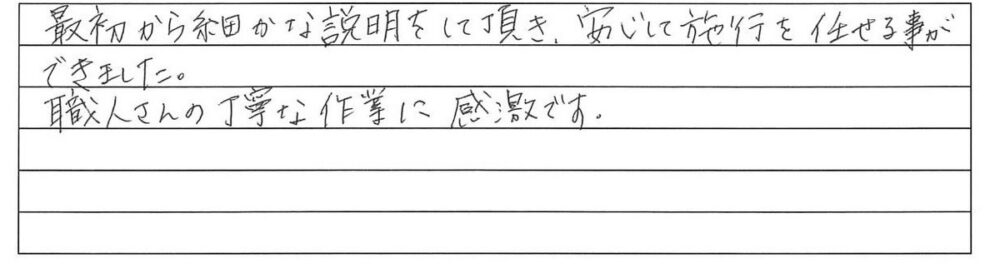 最初から細かな説明をして頂き、安じして施行を任せる事が
できました。
職人さんの丁寧な作業に感激です。